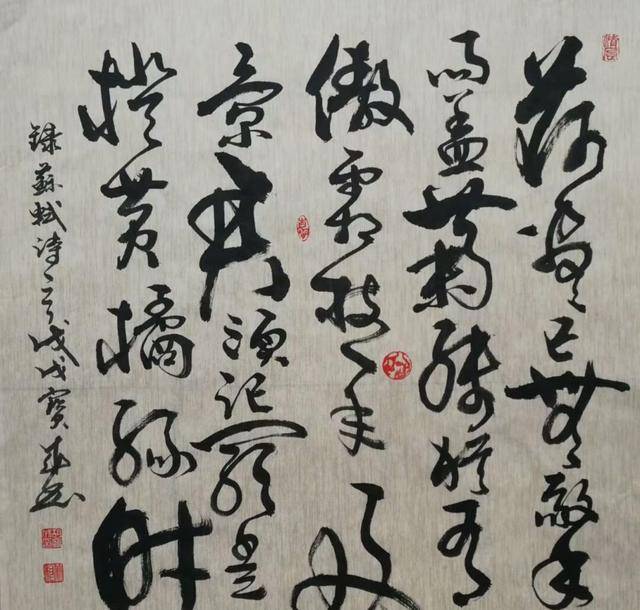 荷盡已無擎
雨蓋菊殘猶有
傲霜枝一年好
景君须记最是
橙黄橘綠时
録蘇軾诗 戊戌寶